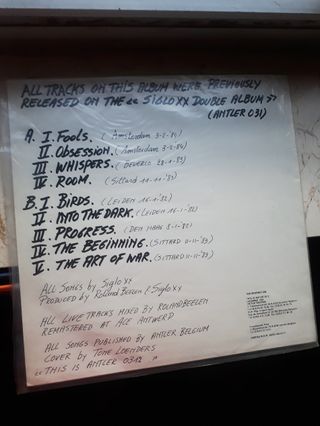 ALL TRACKS ON THIS ALBUM WERE PREVIOUSLY
RELEASED ON THE << SIGLO XX DOUBLE ALBUM >>
(ANTLER 031)
A. I. FOOLS. (Amsterdam 3-2-84)
II. OBSESSION. (Amsterdam 3-2-84)
III. WHISPERS.
IV. ROOM. (Sittard 11-11-'83)
B. I. BIRDS. (LEIDEN 16-1-'82)
II. INTO THE DARK. (LEIDEN 16-1-'82)
III. PROGRESS. (DEN HAAG
IV. THE BEGINNING. (SITTARD 11-11-'83)
V. THE ART OF WAR. (SITTARD 11-11-'83)
ALL SONGS by Siglo XX
PRODUCED by Roland Beelen / Siglo XX
ALL LIVE TRACKS MIXED by ROLAND BEELEN
REMASTERED at ACE ANTWERP
ALL SONGS PUBLISHED by ANTLER BELGIUM
COVER by TONE LOENDERS
<< THIS IS ANTLER 0312 >>